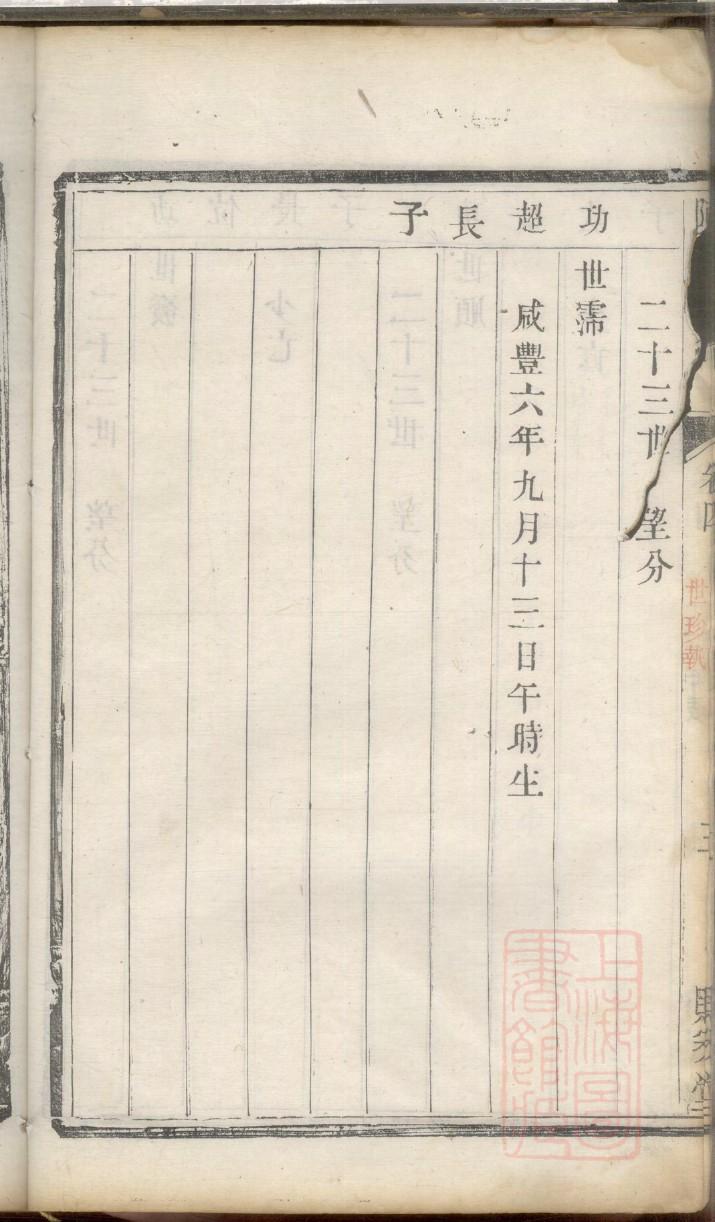 卷四
世珍執
二十三世 望分
功超長子
世霈
咸豐六年九月十三日午時生
上海圖書館藏